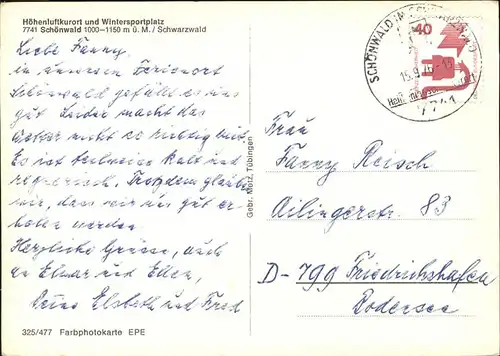 Höhenluftkurort und Wintersportplatz
7741 Schönwald 1000–1150 m ü. M. / Schwarzwald
Liebe Fanny,
in unserem Ferienort
Schönwald gefällt es uns
gut. Leider macht das
Wetter nicht so richtig mit.
Es ist teilweise kalt und
regnerisch. Trotzdem glauben
wir, dass wir uns gut er-
holen werden.
Herzliche Grüsse, auch
an Elmar und Ellen,
Deine Elsbeth und Fred
325/477 Farbphotokarte EPE
Gebr. Metz, Tübingen
SCHÖNWALD IM SCHWARZWALD
15.9.
7741
40
Frau
Fanny Reisch
Ailingerstr. 83
D-799 Friedrichshafen
Bodensee